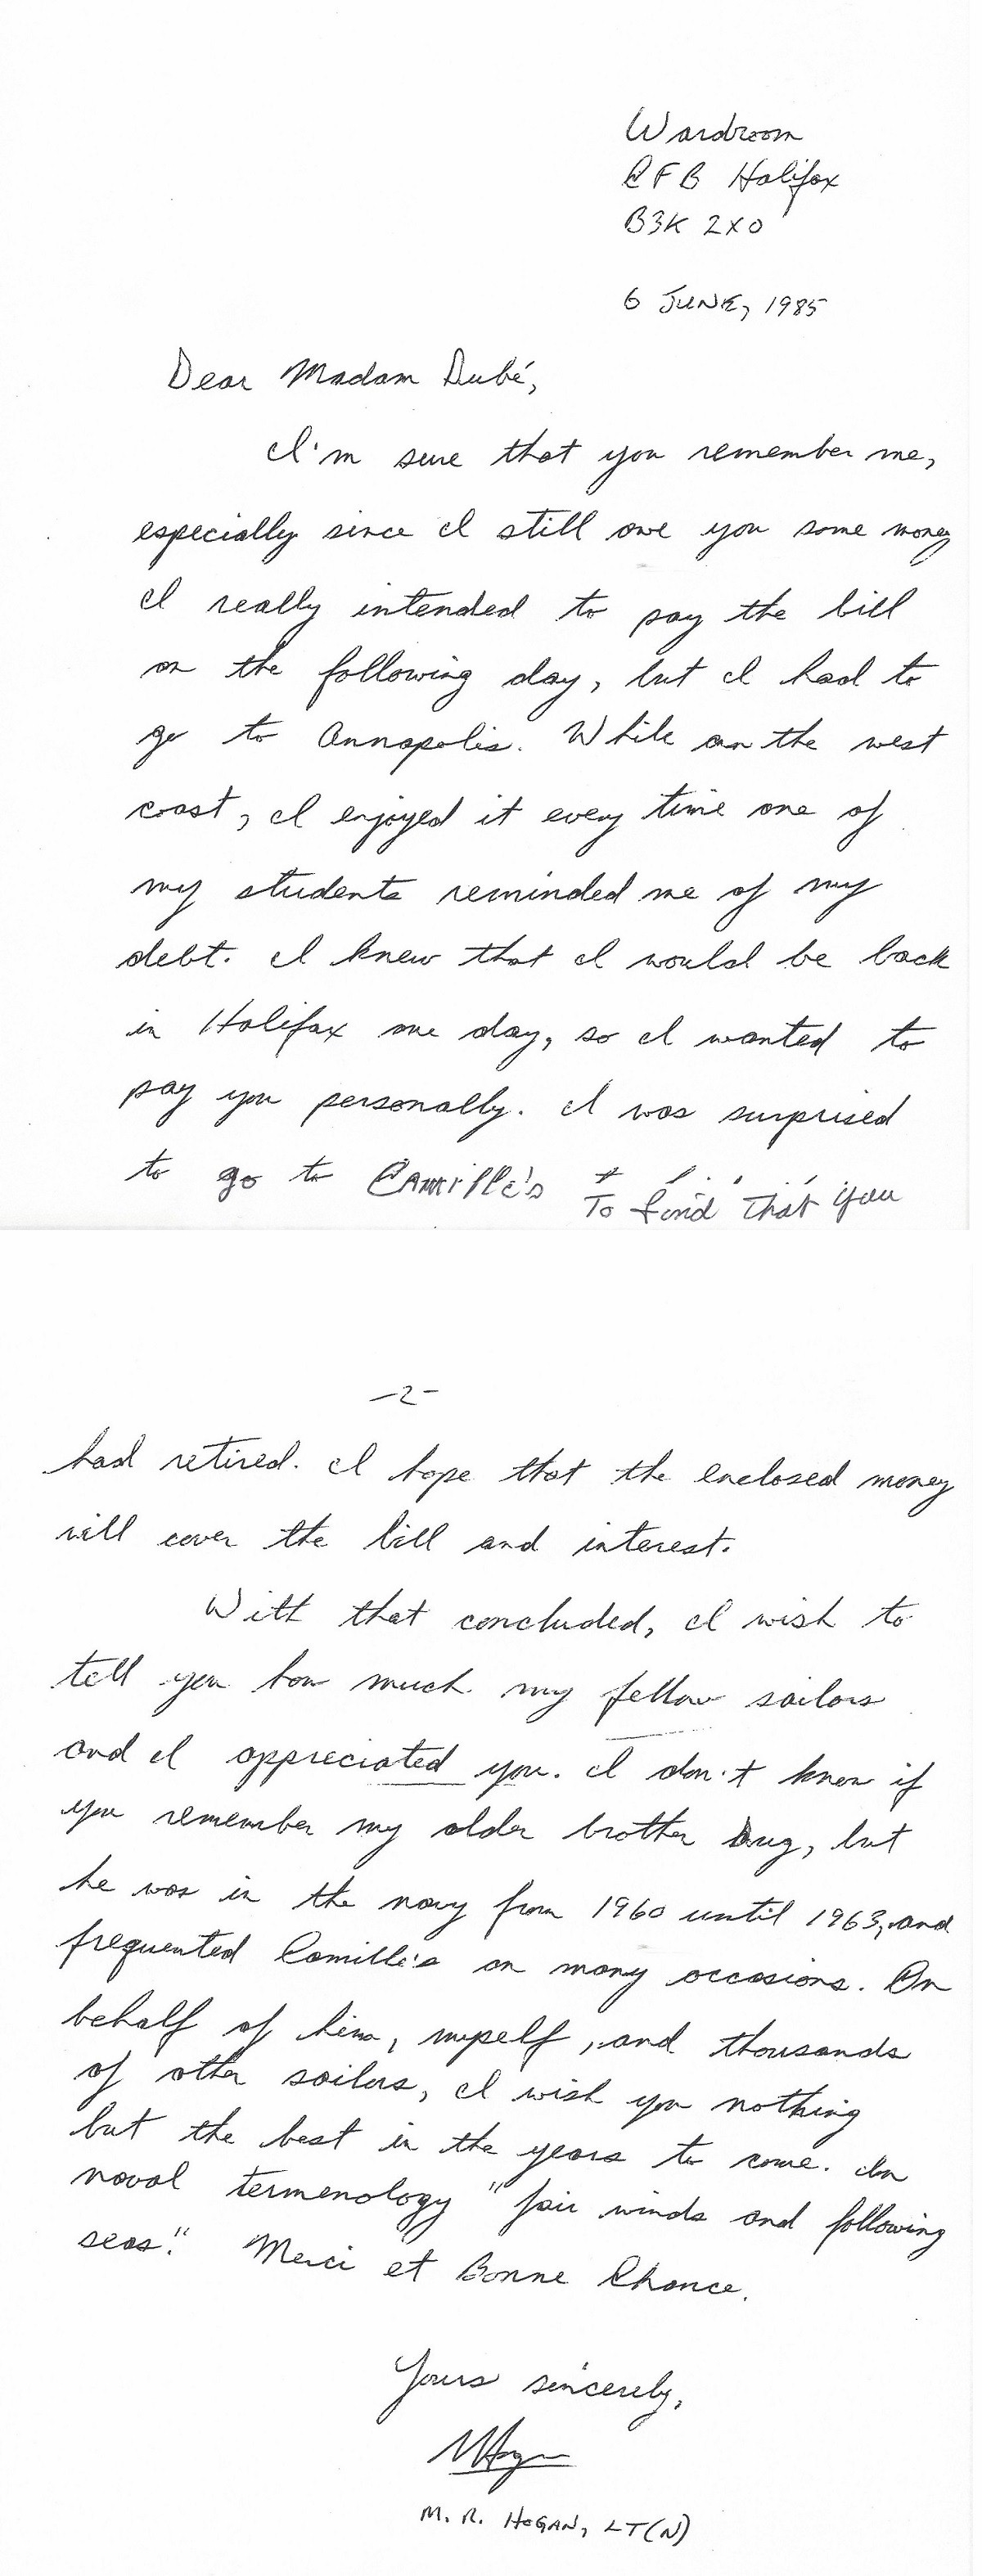 Wardroom
CFB Halifax
B3K 2X0
6 JUNE, 1985
Dear Madam Dubé,
I'm sure that you remember me,
especially since I still owe you some money
I really intended to pay the bill
on the following day, but I had to
go to Annapolis. While on the west
coast, I enjoyed it every time one of
my students reminded me of my
debt. I knew that I would be back
in Halifax one day, so I wanted to
pay you personally. I was surprised
to go to Camille's To find that you
-2-
had retired. I hope that the enclosed money
will cover the bill and interest.
With that concluded, I wish to
tell you how much my fellow sailors
and I appreciated you. I don't know if
you remember my older brother Dug, but
he was in the navy from 1960 until 1963, and
frequented Camille's on many occasions. On
behalf of him, myself, and thousands
of other sailors, I wish you nothing
but the best in the years to come. In
naval termenology "fair winds and following
seas." Merci et Bonne Chance.
Yours sincerely,
M. R. HOGAN, LT(N)